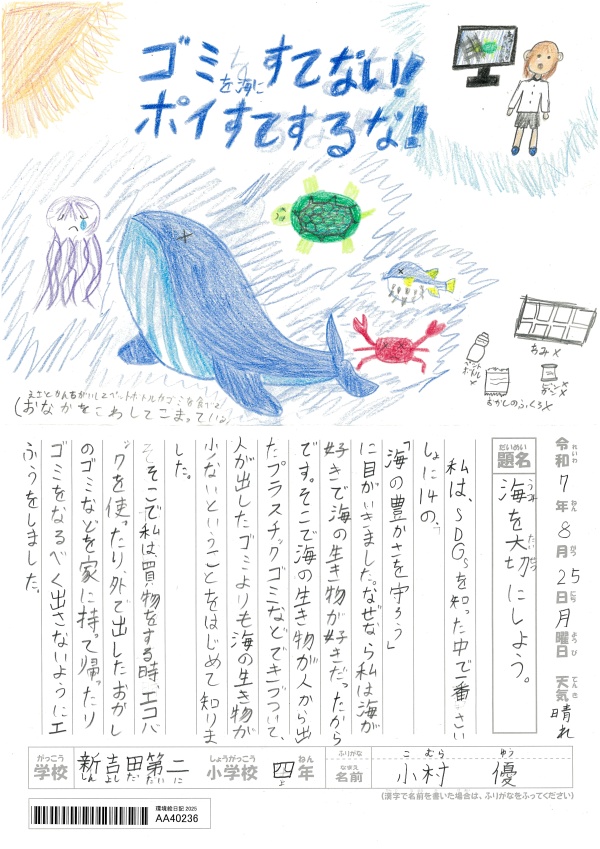 ゴミを海にすてない!
ポイすてするな!
えさとかんちがいしてペットボトルやゴミを食べて
(おなかをこわしてこまっている)
ペットボトル×
おかしのふくろ×
あみ×
令和7年8月25日月曜日 天気 晴れ
れいわ ねん がつ にち ようび てんき
だいめい
題名 海を大切にしよう。
うみ たいせつ
私は、SDGsを知った中で一番さい
しょに14の、
「海の豊かさを守ろう」
に目がいきました。なぜなら私は海が
好きで海の生き物が好きだったから
です。そこで海の生き物が人から出
たプラスチックゴミなどできづついて、
人が出したゴミよりも海の生き物が
少ないということをはじめて知りま
した。
そこで私は、買物をする時、エコバ
ックを使ったり、外で出したおかし
のゴミなどを家に持って帰ったり
ゴミをなるべく出さないようにエ
ふうをしました。
がっこう しょうがっこう ねん
学校 新吉田第二 小学校 四年
しん よし だ だい に よ
ふりがな こむら ゆう
なまえ
名前 小村 優
(漢字で名前を書いた場合は、ふりがなをふってください)
環境絵日記 2025
AA40236